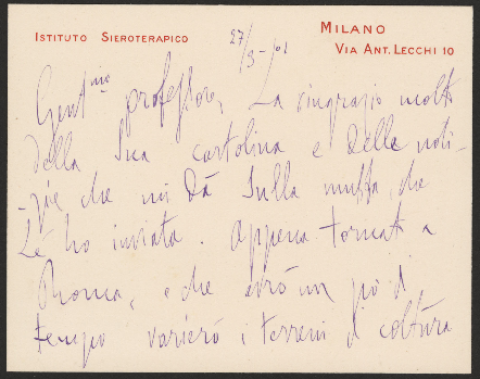 ISTITUTO SIEROTERAPICO
MILANO
VIA ANT. LECCHI 10
27/3-901
Gent.mo professore, La ringrazio molto
della Sua cartolina e delle noti-
-zie che mi dà sulla muffa che
Le ho inviata. Appena tornato a
Roma, e che avrò un pò di
tempo varierò i terreni di coltura